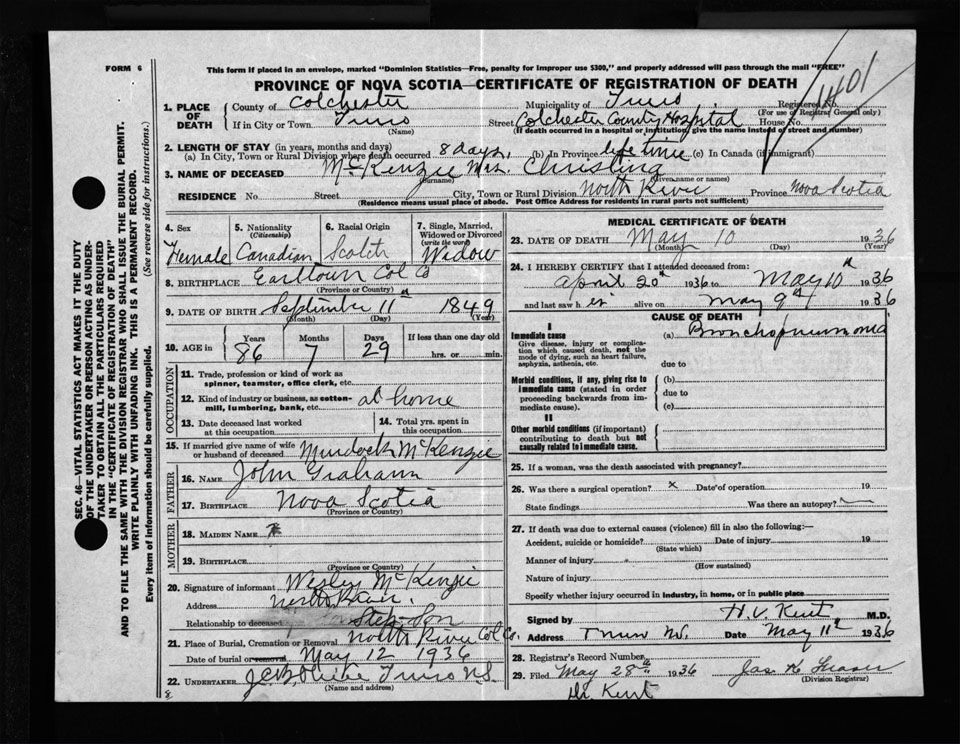 FORM 6
This form if placed in an envelope, marked "Dominion Statistics—Free, penalty for improper use $300," and properly addressed will pass through the mail "FREE"
PROVINCE OF NOVA SCOTIA—CERTIFICATE OF REGISTRATION OF DEATH
1401
1. PLACE OF DEATH
County of Colchester Municipality of Truro Registered No.
(For use of Registrar General only)
If in City or Town Truro Street Colchester County Hospital House No.
(Name) (If death occurred in a hospital or institution, give the name instead of street and number)
2. LENGTH OF STAY (in years, months and days)
(a) In City, Town or Rural Division where death occurred 8 days. (b) In Province life time (c) In Canada (if immigrant)
3. NAME OF DECEASED McKenzie Mrs. Christina
(Surname) (Given name or names)
RESIDENCE No. Street City, Town or Rural Division North River Province Nova Scotia
(Residence means usual place of abode. Post Office Address for residents in rural parts not sufficient)
4. Sex Female
5. Nationality (Citizenship) Canadian
6. Racial Origin Scotch
7. Single, Married, Widowed or Divorced (write the word) Widow
8. BIRTHPLACE Earltown Col Co
(Province or Country)
9. DATE OF BIRTH September 11th 1849
(Month) (Day)
10. AGE in Years 86 Months 7 Days 29 If less than one day old
hrs. or min.
OCCUPATION
11. Trade, profession or kind of work as spinner, teamster, office clerk, etc.
12. Kind of industry or business, as cotton-mill, lumbering, bank, etc. at home
13. Date deceased last worked at this occupation
14. Total yrs. spent in this occupation
15. If married give name of wife or husband of deceased Murdock McKenzie
FATHER
16. NAME John Graham
17. BIRTHPLACE Nova Scotia
(Province or Country)
MOTHER
18. MAIDEN NAME
19. BIRTHPLACE
(Province or Country)
20. Signature of informant Wesley McKenzie
Address North River.
Relationship to deceased Step-Son
21. Place of Burial, Cremation or Removal North River Col Co.
Date of burial or removal May 12 1936
22. UNDERTAKER Truro N.S.
(Name and address)
MEDICAL CERTIFICATE OF DEATH
23. DATE OF DEATH May 10 1936
(Month) (Day) (Year)
24. I HEREBY CERTIFY that I attended deceased from:
April 20th 1936 to May 10th 1936
and last saw her alive on May 9th 1936
CAUSE OF DEATH
I
Immediate cause
Give disease, injury or complication which caused death, not the mode of dying, such as heart failure, asphyxia, asthenia, etc.
(a) Bronchopneumonia
due to
Morbid conditions, if any, giving rise to immediate cause (stated in order proceeding backwards from immediate cause).
(b)
due to
(c)
II
Other morbid conditions (if important) contributing to death but not causally related to immediate cause.
25. If a woman, was the death associated with pregnancy?
26. Was there a surgical operation? x Date of operation 19
State findings Was there an autopsy?
27. If death was due to external causes (violence) fill in also the following:—
Accident, suicide or homicide? Date of injury 19
(State which)
Manner of injury
(How sustained)
Nature of injury
Specify whether injury occurred in industry, in home, or in public place
Signed by H. V. Kent M.D.
Address Truro N.S. Date May 11th 1936
28. Registrar's Record Number
29. Filed May 28th 1936 Jas. H. Fraser
(Division Registrar)
Dr Kent
SEC. 46—VITAL STATISTICS ACT MAKES IT THE DUTY
OF THE UNDERTAKER OR PERSON ACTING AS UNDER-
TAKER TO OBTAIN ALL THE PARTICULARS REQUIRED
IN THE "CERTIFICATE OF REGISTRATION OF DEATH"
AND TO FILE THE SAME WITH THE DIVISION REGISTRAR WHO SHALL ISSUE THE BURIAL PERMIT.
WRITE PLAINLY WITH UNFADING INK. THIS IS A PERMANENT RECORD.
Every item of information should be carefully supplied. (See reverse side for instructions.)